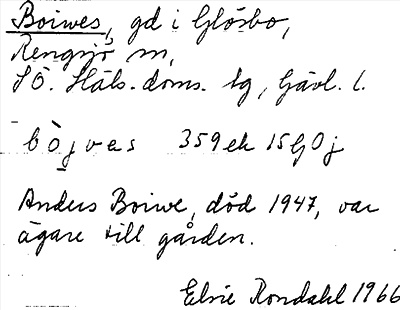 Boiwes, gd i Glösbo,
Rengsjö sn,
SÖ. Häls. doms. tg, Gävl. l.
bòjves 359 ek 15 G 0 j
Anders Boiwe, död 1947, var
ägare till gården.
Elsie Rondahl 1966